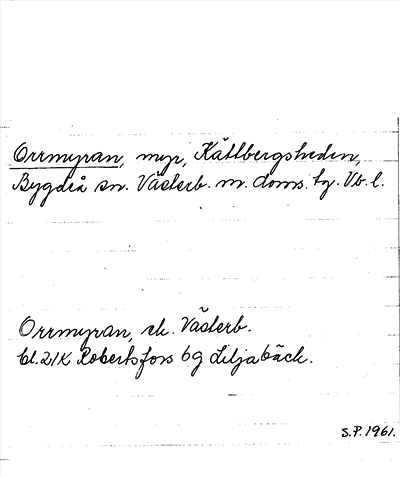 Orrmyran, myr, Kättbergsheden,
Bygdeå sn. Västerb. m. doms. tg. Vb. l.
Orrmyran, ek. Västerb.
bl. 21K Robertsfors 6g Liljabäck.
S.P. 1961.